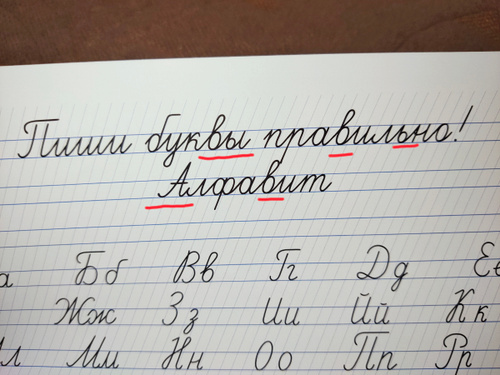 Пиши буквы правильно!
Алфавит
а Бб Вв Гг Дд Ее
Жж Зз Ии Йй Кк
Лл Мм Нн Оо Пп Рр